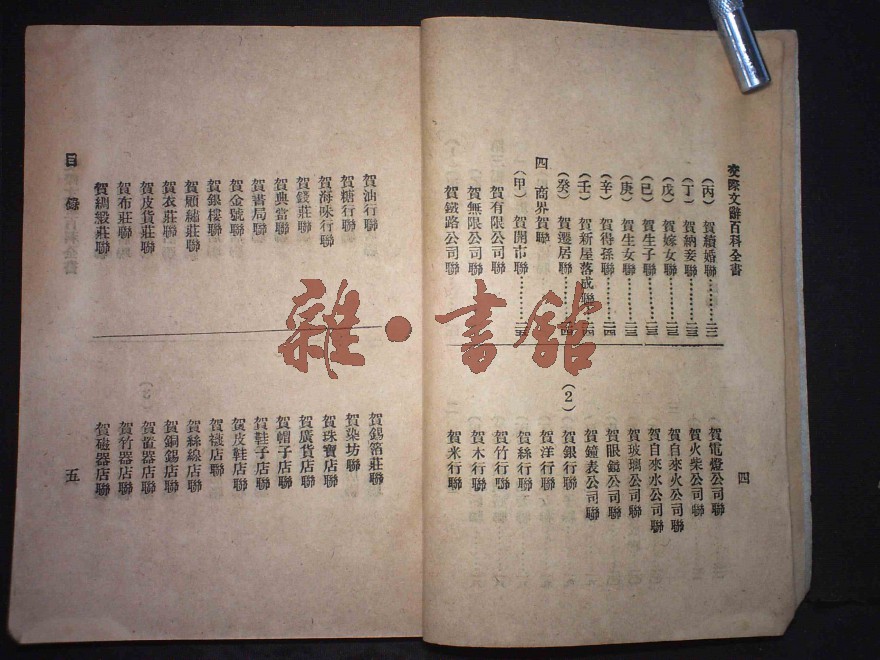 交際文辭百科全書
(丙) 賀續婚聯
(丁) 賀納妾聯
(戊) 賀嫁女聯
(己) 賀生子聯
(庚) 賀生女聯
(辛) 賀得孫聯
(壬) 賀新屋落成聯
(癸) 賀遷居聯
四 商界賀聯
(甲) 賀開市聯
賀有限公司聯
賀無限公司聯
賀鐵路公司聯
四
賀電燈公司聯
賀火柴公司聯
賀自來火公司聯
賀自來水公司聯
賀玻璃公司聯
賀眼鏡公司聯
賀鐘表公司聯
(2) 賀銀行聯
賀洋行聯
賀絲行聯
賀竹行聯
賀木行聯
賀米行聯
目錄
賀油行聯
賀糖行聯
賀海味行聯
賀錢莊聯
賀典當聯
賀書局聯
賀金號聯
賀銀樓聯
賀顧繡莊聯
賀衣莊聯
賀皮貨莊聯
賀布莊聯
賀綢緞莊聯
賀錫箔莊聯
賀染坊聯
賀珠寶店聯
賀廣貨店聯
賀帽子店聯
賀鞋子店聯
賀皮鞋店聯
賀襪店聯
賀絲線店聯
賀銅錫店聯
賀竹器店聯
賀磁器店聯
五
雜·書館